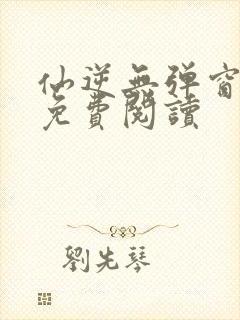 仙逆無弹窗
免費閱讀
劉先琴